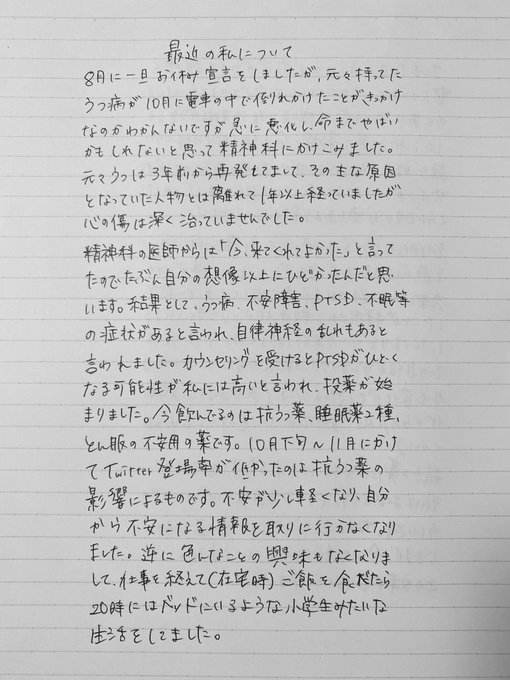 最近の私について
8月に一旦お休み宣言をしましたが、元々持ってた
うつ病が10月に電車の中で倒れかけたことがきっかけ
なのかわかんないですが急に悪化し、命までやばい
かもしれないと思って精神科にかけこみました。
元々うつは3年前から再発してまして、その主な原因
となっていた人物とは離れて1年以上経っていましたが
心の傷は深く治っていませんでした。
精神科の医師からは「今、来てくれてよかった」と言って
たのでたぶん自分の想像以上にひどかったんだと思
います。結果として、うつ病、不安障害、PTSD、不眠等
の症状があると言われ、自律神経の乱れもあると
言われました。カウンセリングを受けるとPTSDがひどく
なる可能性が私には高いと言われ、投薬が始
まりました。今飲んでるのは抗うつ薬、睡眠薬2種、
とん服の不安用の薬です。10月下旬〜11月にかけ
てTwitter登場率が低かったのは抗うつ薬の
影響によるものです。不安が少し軽くなり、自分
から不安になる情報を取りに行かなくなり
ました。逆に色んなことの興味もなくなりま
して、仕事を終えて(在宅時)ご飯を食べたら
20時にはベッドにいるような小学生みたいな
生活をしてました。